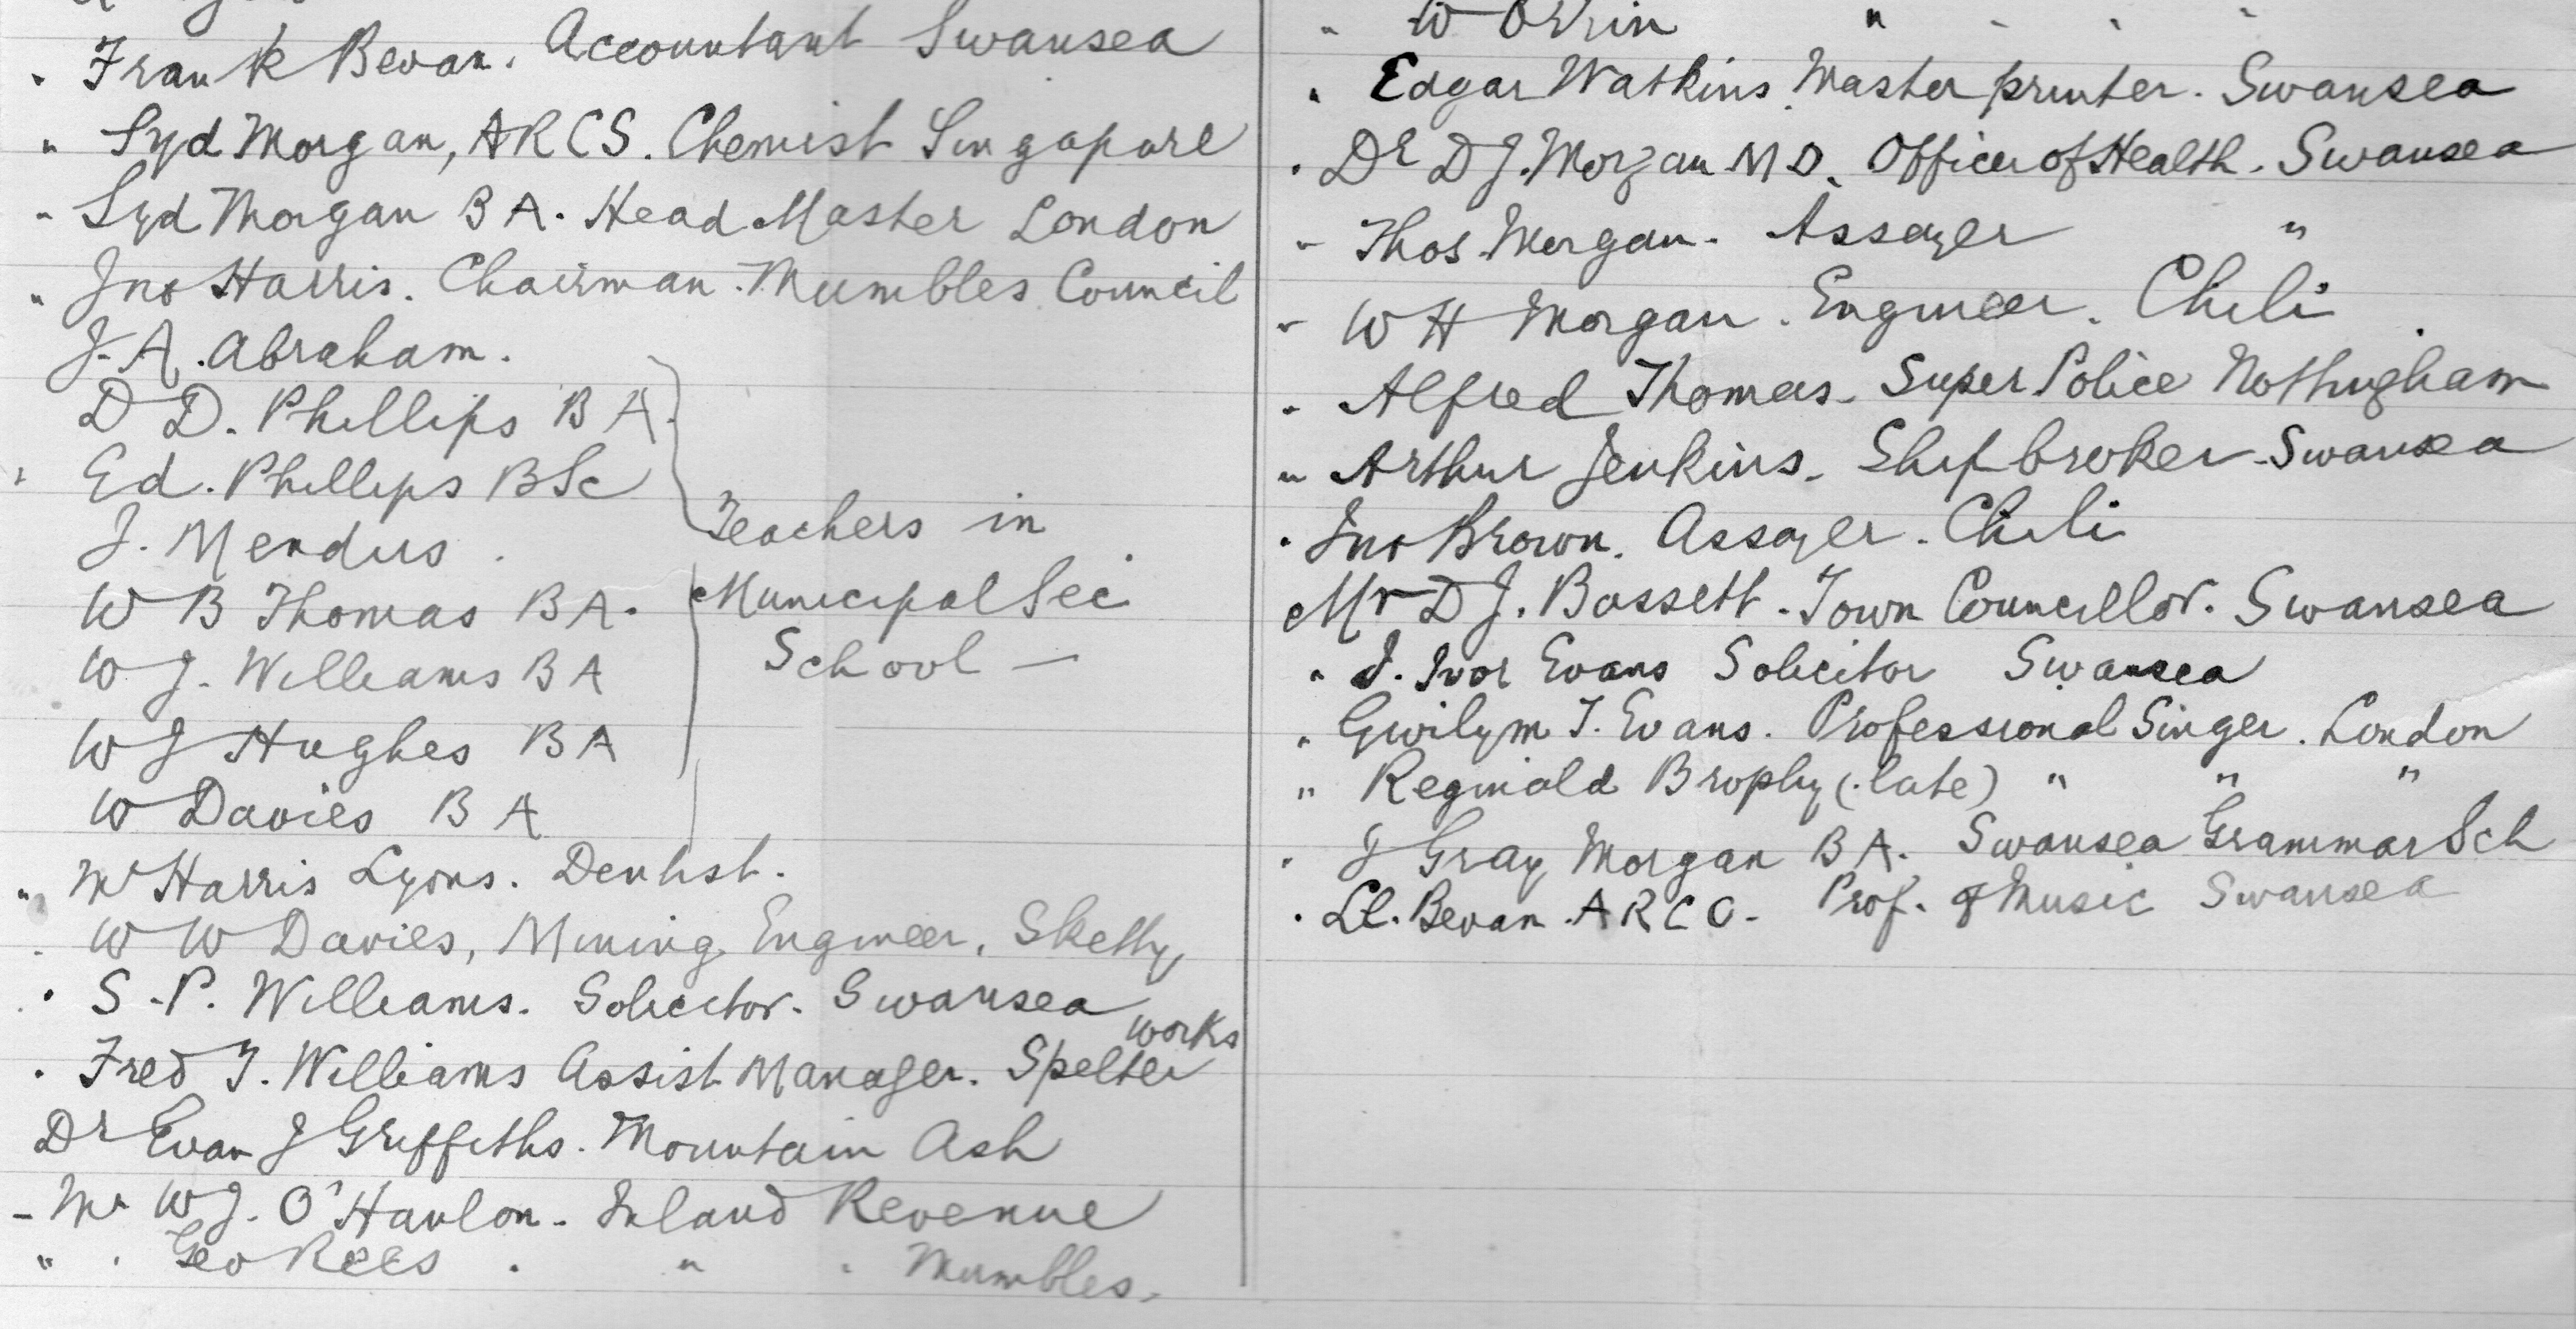 " Frank Bevan. Accountant Swansea
" Syd Morgan, ARCS. Chemist Singapore
" Syd Morgan BA. Head Master London
" Jno Harris. Chairman. Mumbles Council
J. A. Abraham.
D D. Phillips BA.
" Ed. Phillips BSc
J. Mendus.
W B Thomas BA.
W J. Williams BA
W J Hughes BA
W Davies BA
Teachers in
Municipal Sec
School —
" Mr Harris Lyons. Dentist.
" W W Davies, Mining Engineer. Sketty
" S. P. Williams. Solicitor. Swansea
works
" Fred T. Williams Assist Manager. Spelter
Dr Evan J Griffiths. Mountain Ash
- Mr W J. O'Hanlon - Inland Revenue
" " Geo Rees " " " Mumbles.
" W " " " "
" Edgar Watkins Master printer. Swansea
" Dr D J. Morgan MD. Officer of Health. Swansea
" Thos. Morgan. Assayer "
" W H Morgan. Engineer. Chili
" Alfred Thomas. Super Police Nothingham
" Arthur Jenkins. Shipbroker Swansea
" Jno Brown. Assayer. Chili
Mr D J. Bassett. Town Councillor. Swansea
" J. Ivor Evans Solicitor Swansea
" Gwilym T. Evans. Professional Singer. London
" Reginald Brophy (late) " " "
" J Gray Morgan BA. Swansea Grammar Sch
" Ll. Bevan. ARCO. Prof. of Music Swansea